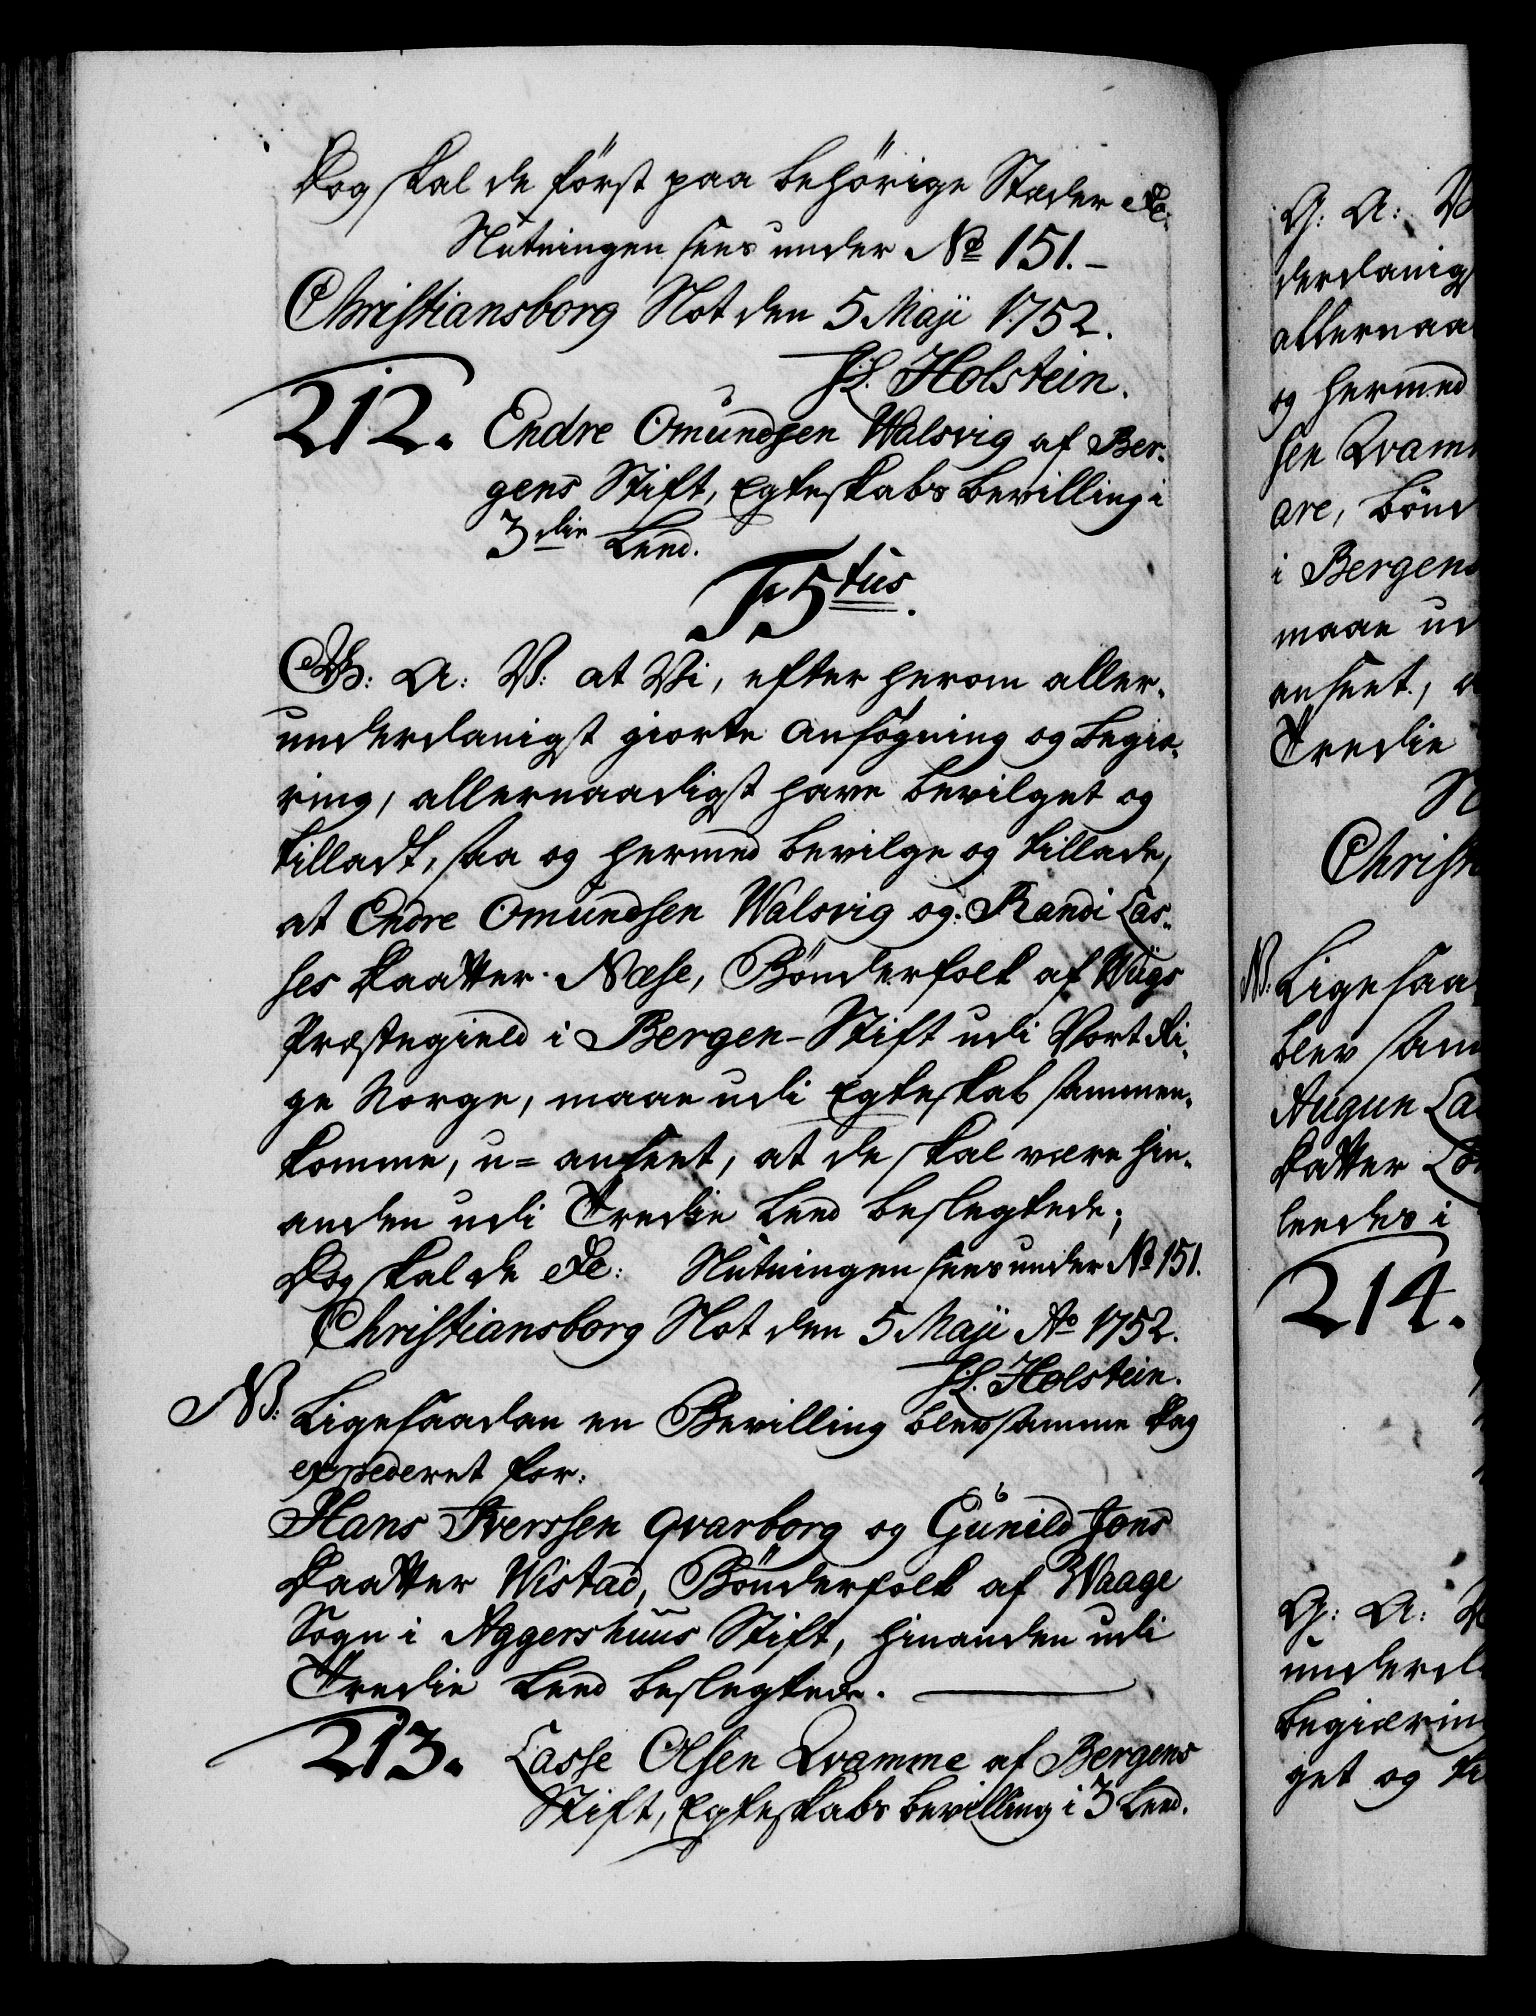 Dog skal de først paa behörige Stæder &c:
Slutningen sees under No 151.-
Christiansborg Slot den 5 Maji 1752.
J. L. Holstein.
212. Endre Omundsen Walsvig af Ber-
gens Stift, Egteskabs bevilling i
3die Leed.
F 5tus.
G: A: V: at Vi, efter herom aller-
underdanigst giorte ansøgning og begiæ-
ring, allernaadigst have bevilget og
tilladt, saa og hermed bevilge og tillade,
at Endre Omundsen Walsvig og Randi Las-
ses Daatter Næse, Bønderfolk af Wügs
Præstegield i Bergen-Stift udi Vort Ri-
ge Norge, maae udi Egteskab sammen-
komme, u=anseet, at de skal være hin-
anden udi Tredie Leed beslegtede;
Dog skal de &c: Slutningen sees under No 151.
Christiansborg Slot den 5 Maji Ao 1752.
J. L. Holstein.
NB: Ligesaadan en Bevilling blev samme Dag
expederet for:
Hans Iverssen Qvarborg og Gunild Jons
Daatter Wistad, Bønderfolk af Waage
Sogn i Aggershuus Stift, hinanden udi
Tredie Leed beslegtede.
213. Lasse Olsen Qvamme af Bergens
Stift, Egteskabs bevilling i 3 Leed.
G: A: V
derdanigst
allernaa
og hermed
sen Qvam
are, bønd
i Bergens
maae ud
anseet, a
Tredie
Sl
Christ
NB: Ligesaa
blev sam
Augun La
Datter
leedes i
214.
G: A: V
underd
begiæring
get og ti